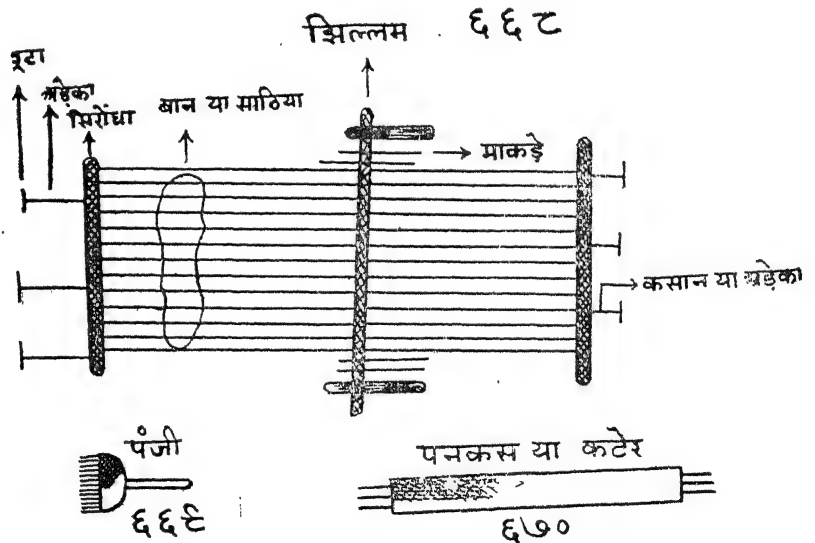 झिल्लम ६६८
खूटा
खड़ेका
सिरोंघा
बान या साठिया
माकड़े
कसान या खड़ेका
पंजी
६६९
पनकस या कटेर
६७०